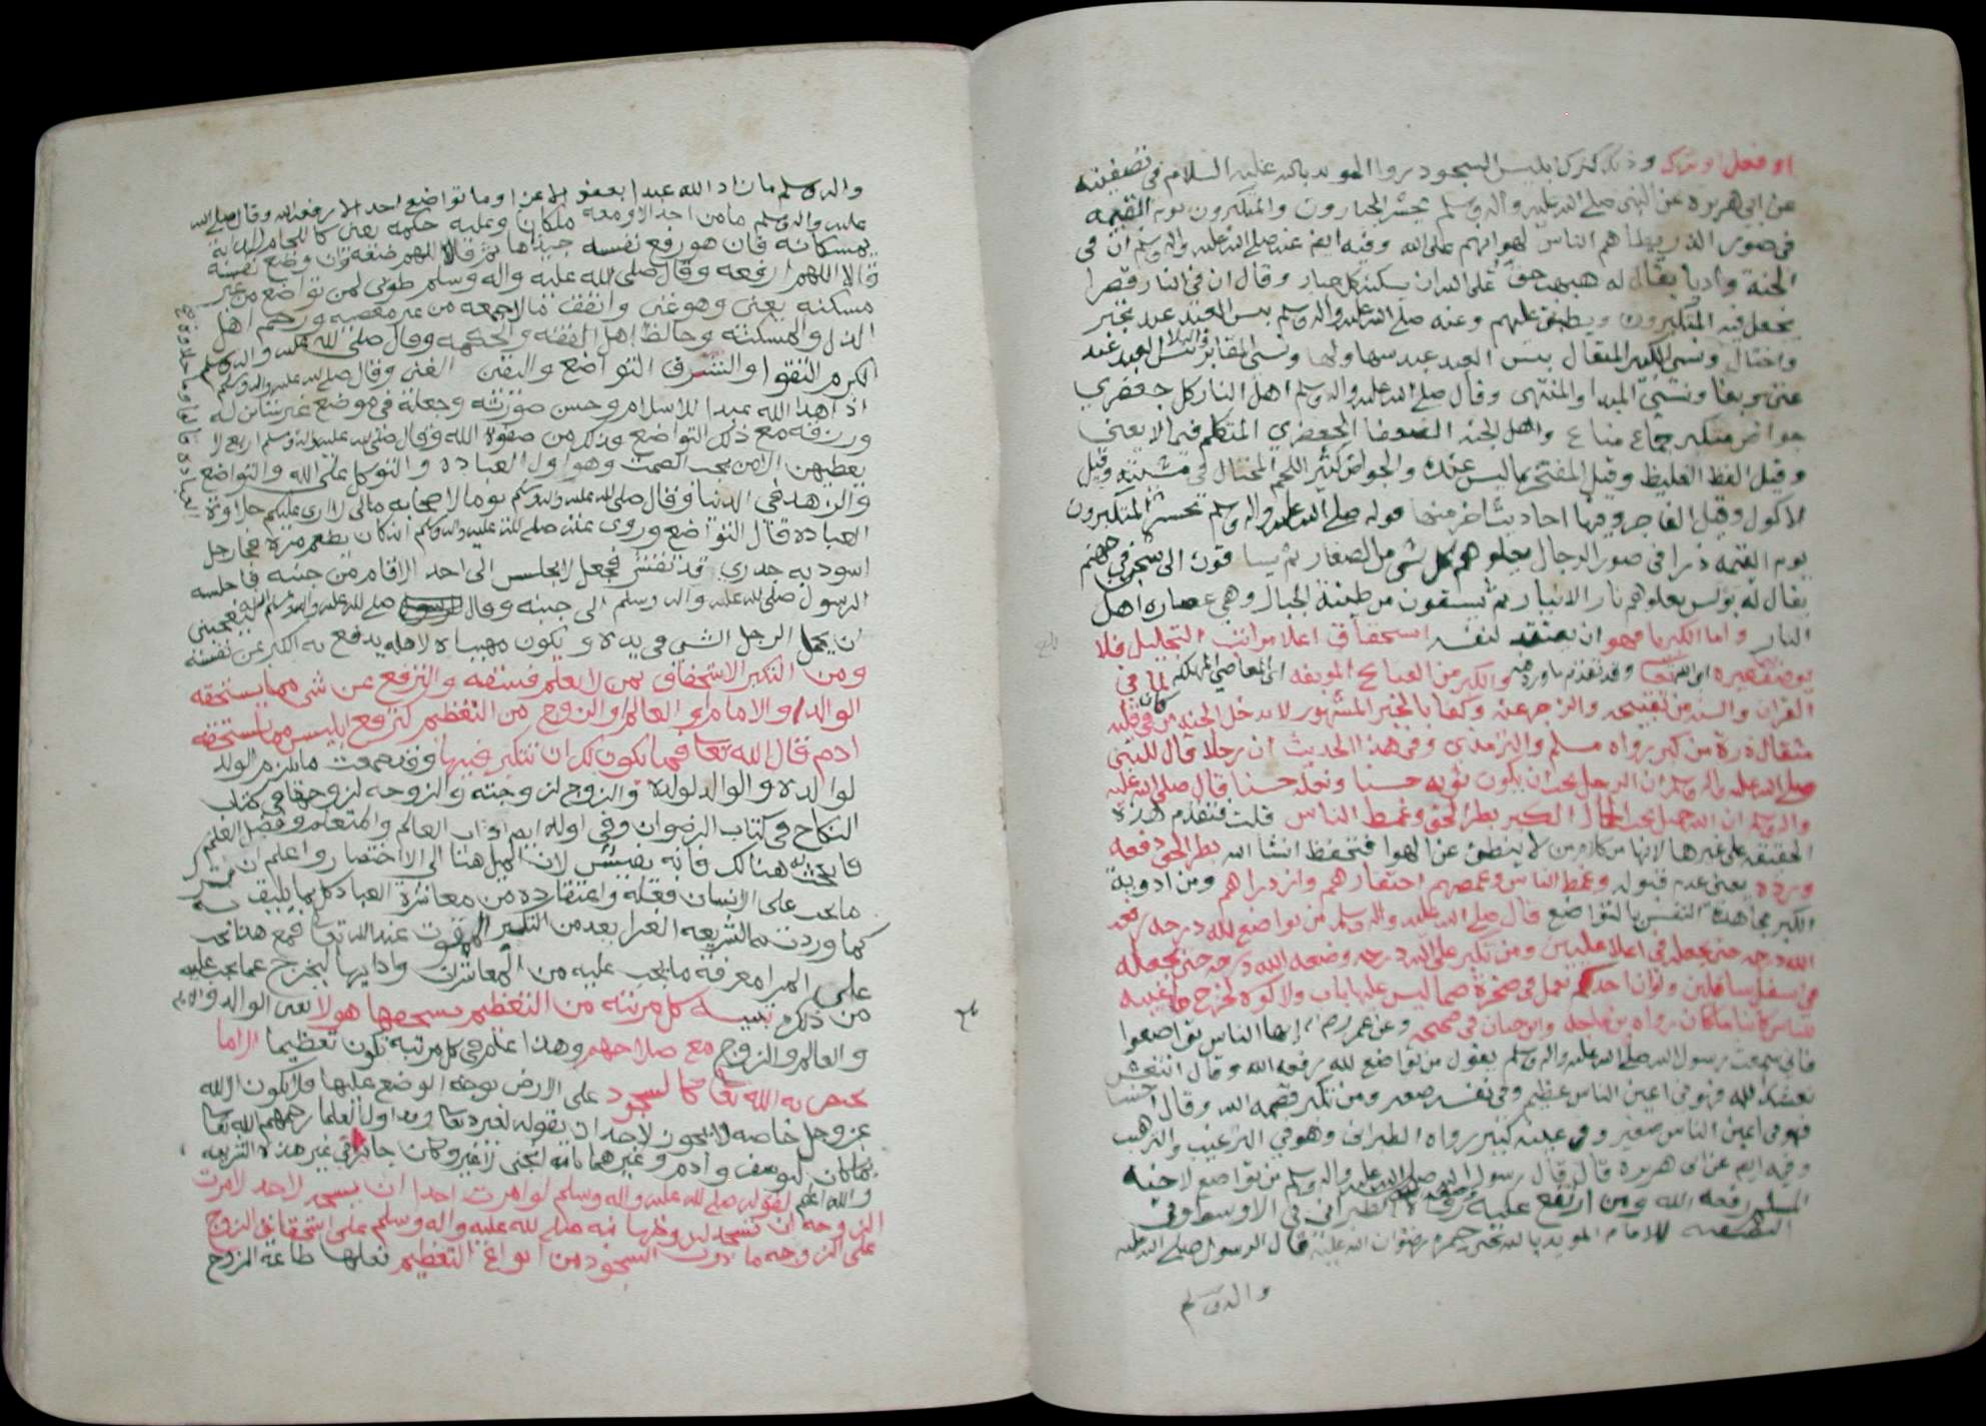 او فعل او ترك وذلك كترك ابليس السجود روا المويد بالله عليه السلام في تصفيته
عن ابي هريره عن النبي صلى الله عليه واله وسلم يحشر الجبارون والمتكبرون يوم القيمه
في صور الذر يطأهم الناس لهوانهم على الله وفيه ايض عنه صلى الله عليه واله وسلم ان في
الجنة واديا يقال له هبهب حق على الله ان يسكنه كل جبار وقال ان في النار قصرا
يجعل فيه المتكبرون ويطبق عليهم وعنه صلى الله عليه واله وسلم بيس العبد عبد تجبر
واختال ونسي الكبير المتعال بيس العبد عبد سها ولها ونسي المقابر والبلا بيس العبد عبد
عتى وبغا ونسي المبدا والمنتهى وقال صلى الله عليه واله وسلم اهل النار كل جعظري
جواض متكبر جماع مناع واهل الجنه الضعفا الجعظري المتكلم فيما لا يعني
وقيل الفظ الغليظ وقيل المفتخر بما ليس عنده والجواض كثير اللحم المختال في مشيته وقيل
الاكول وقيل الفاجر وفيها احاديث اخر منها قوله صلى الله عليه واله وسلم يحشر المتكبرون
يوم القيمه ذرا في صور الرجال يعلوهم كل شي من الصغار ثم يساقون الى سجن في جهنم
يقال له بولس يعلوهم نار الانيار ثم يسقون من طينة الخبال وهي عصاره اهل
النار واما الكبريا فهو ان يعتقد لنفسه استحقاق اعلا مراتب التبجيل فلا
يوصف غيره الله تعا وقد تقدم ما ورد والكبر من القبايح الموبقه المعاصي المهلكه لما في
القران والسنه من تقبيحه والزجر عنه وكفا بالخبر المشهور لا يدخل الجنه من كان في قلبه
مثقال ذرة من كبر رواه مسلم والترمذي وفي هذا الحديث ان رجلا قال للنبي
صلى الله عليه واله وسلم ان الرجل يحب ان يكون ثوبه حسنا ونعله حسنا قال صلى الله عليه
واله وسلم ان الله جميل يحب الجمال الكبر بطر الحق وغمط الناس قلت فتقدم هذه
الحقيقه على غيرها لانها من كلام من لا ينطق عن الهوا فتحفظ انشا الله بطر الحق دفعه
ورده يعني عدم قبوله وغمط الناس وغمصهم احتقارهم وازدراهم ومن ادوية
الكبر مجاهدة النفس بالتواضع قال صلى الله عليه واله وسلم من تواضع لله درجه رفعه
الله درجه حتى يجعله في اعلا عليين ومن تكبر على الله درجه وضعه الله درجه حتى يجعله
في اسفل سافلين ولو ان احدكم يعمل في صخرة صما ليس عليها باب ولا كوه لخرج ما غيبه
للناس كاينا ما كان رواه بن ماجه وابن حبان في صحيحه وعن عمر ايها الناس تواضعوا
فاني سمعت رسول الله صلى الله عليه واله وسلم يقول من تواضع لله رفعه الله وقال انتعش
نعشك الله فهو في اعين الناس عظيم وفي نفسه صغير ومن تكبر قصمه الله وقال اخسا
فهو في اعين الناس صغير وفي عينه كبير رواه الطبراني وهو في الترغيب والترهيب
وفيه ايض عن ابي هريره قال قال رسول الله صلى الله عليه واله وسلم من تواضع لاخيه
المسلم رفعه الله ومن ارتفع عليه وضعه الله الطبراني في الاوسط وفي
التصفيه للامام المويد بالله يحي بن حمزه رضوان الله عليه قال الرسول صلى الله عليه
واله وسلم
واله وسلم ما زاد الله عبدا بعفو الا عزا وما تواضع احد الا رفعه الله وقال صلى الله
عليه واله وسلم ما من احد الا ومعه ملكان وعليه حكمه يعني كاللجام للدابة
يمسكانه فان هو رفع نفسه جبذاها ثم قالا اللهم ضعه وان وضع نفسه
قالا اللهم ارفعه وقال صلى الله عليه واله وسلم طوبى لمن تواضع من غير
مسكنه يعني وهو غني وانفق مالا جمعه من غير معصيه ورحم اهل
الذل والمسكنه وخالط اهل الفقه والحكمه وقال صلى الله عليه واله وسلم
الكرم التقوا والشرف التواضع واليقين الغنى وقال صلى الله عليه واله وسلم
اذا هدا الله عبدا للاسلام وحسن صورته وجعله في موضع غير شاين له
ورزقه مع ذلك التواضع فذلك من صفوة الله وقال صلى الله عليه واله وسلم اربع لا
يعطيهن الا من يحب الصمت وهو اول العباده والتوكل على الله والتواضع
والزهد في الدنيا وقال صلى الله عليه واله وسلم يوما لاصحابه مالي لا ارى عليكم حلاوة
العباده قالوا وما حلاوة
العباده قال التواضع وروي عنه صلى الله عليه واله وسلم انه كان يطعم مره فجا رجل
اسود به جدري قد تقشر فجعل لا يجلس الى احد الا قام من جنبه فاجلسه
الرسول صلى الله عليه واله وسلم الى جنبه وقال صلى الله عليه واله وسلم انه ليعجبني
ان يحمل الرجل الشي في يده ويكون مهنة لاهله يدفع به الكبر عن نفسه
ومن التكبر الاستخفاف بمن لا يعلم فسقه والترفع عن شي مما يستحقه
الوالد او الامام او العالم او الزوج من التعظيم كترفع ابليس مما يستحقه
ادم قال الله تعا فما يكون لك ان تتكبر فيها وقد ما يلزم الولد
لوالده والوالد لولده والزوج لزوجته والزوجه لزوجها في كتاب
النكاح في كتاب الرضوان وفي اوله ايض اداب العالم والمتعلم وفضل العلم
فابحث هنالك فانه نفيس لان الميل هنا الى الاختصار واعلم ان
ما يجب على الانسان فعله واعتقاده من معاشرة العباد كل بما يليق به
كما وردت به الشريعه الغرا بعد من التكبر الممقوت عند الله تعا فمع هذا يجب
على المرا معرفة ما يجب عليه من المعاشرات وادابها ليخرج عما يجب عليه
من ذلك تنبيه كل مرتبه من التعظيم يستحقها هولا يعني الوالد والامام
والعالم والزوج مع صلاحهم وهذا اعلم في كل مرتبه تكون تعظيما الا ما
يختص به الله تعا كالسجود على الارض بوجه الوضع عليها فلا يكون الا لله
عز وجل خاصه لا يجوز لاحد ان يقوله لغيره تعا وقد اول العلما رحمهم الله تعا
ما كان ليوسف وادم وغيرهما بانه انحنى لا غير وكان جائز في غير هذه الشريعه
والله اعلم لقوله صلى الله عليه واله وسلم لو امرت احدا ان يسجد لاحد لامرت
الزوجه ان تسجد لزوجها نبه صلى الله عليه واله وسلم على استحقاق الزوج
على الزوجه ما دون السجود من انواع التعظيم فعليها طاعة الزوج